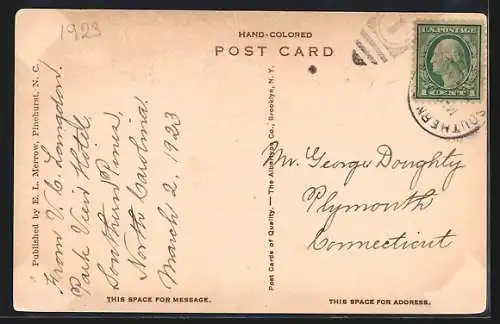 1923
HAND-COLORED
POST CARD
U.S. POSTAGE
1 CENTS 1
SOUTHERN
Published by E. L. Merrow, Pinehurst, N. C.
From V. C. Langdon.
Park View Hotel,
Southern Pines,
North Carolina.
March 2, 1923
Post Cards of Quality. — The Albertype Co., Brooklyn, N. Y.
Mr. George Doughty
Plymouth
Connecticut
THIS SPACE FOR MESSAGE.
THIS SPACE FOR ADDRESS.